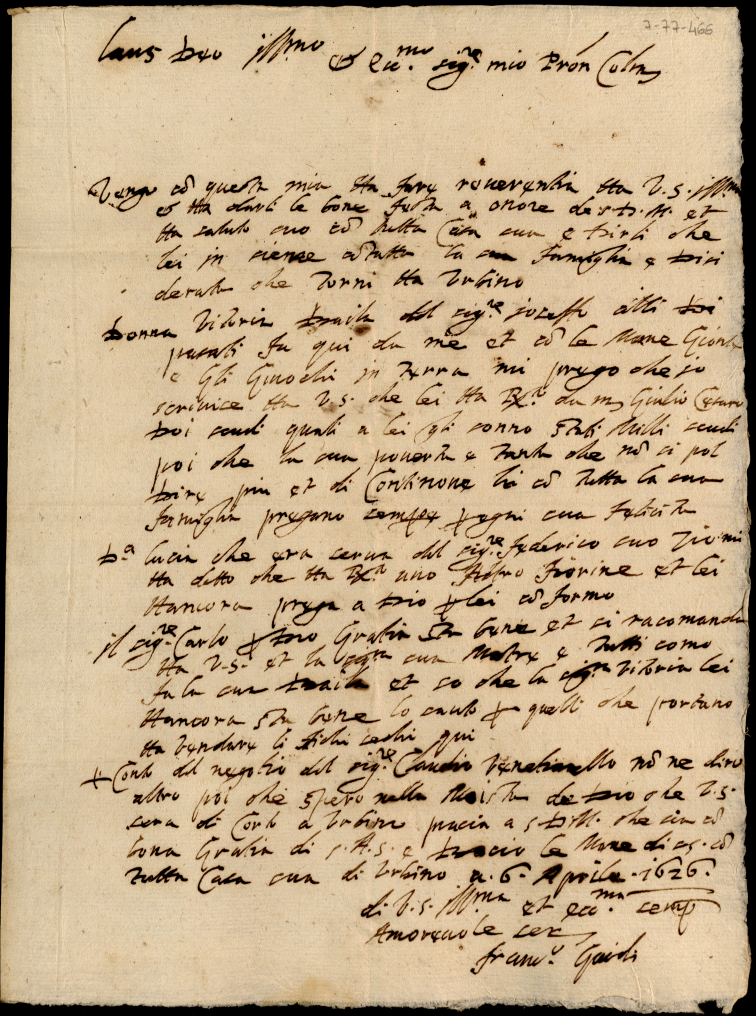 7-77-466
Laus Deo Ill.mo et ecc.mo sig.re mio Pron Col.mo
Vengo cõ questa mia Ha fare reverentia Ha V.S. Ill.ma
et Ha darli le bone feste a onore de s.D.M. et
Ha saluto suo cõ tutta Casa sua e Dirli che
lei in sieme cõ tutta la sua famiglia e Disi
derata che Torni Ha Urbino
Donna Vitoria del sig.re iozeffo Di
fu qui da me et cõ le Mane Gionte
e Gli Ginochi in Terra mi prego che io
scrivice Ha V.S. che lei Ha da m Giulio Cesare
Doi scudi quali a lei gli sonno stati Milli scudi
poi che la sua poverta e tanta che nõ si pol
Dire piu et di Continone lei cõ tutta la sua
famiglia pregano sempre p ogni sua felicita
D.a Lucia che era serva del sig.re Federico suo Zio mi
Ha ditto che Ha uno fiorine et lei
Hancora prega a Dio p lei cõ forme
il sig.re Carlo p Dio Gratia sta bene et si racomanda
Ha V.S. et la sig.ra sua Matre e tutti como
fa la sua et so che la sig.ra Vitoria lei
Hancora sta bene lo saputo p quelli che portano
Ha vendare li fichi sechi qui
p Conto del negotio del sig.re Claudio nõ ne diro
altro poi che spero nella de Dio che V.S.
sera di Corto a Urbino piacia a s.D.M. che sia cõ
bona Gratia di s.A.S. e bacio le Mane di cõ
tutta Casa sua di Urbino a. 6. Aprile. 1626.
di V.S. Ill.ma et ecc.ma semp
Amorevole ser
Franc.o Guidi